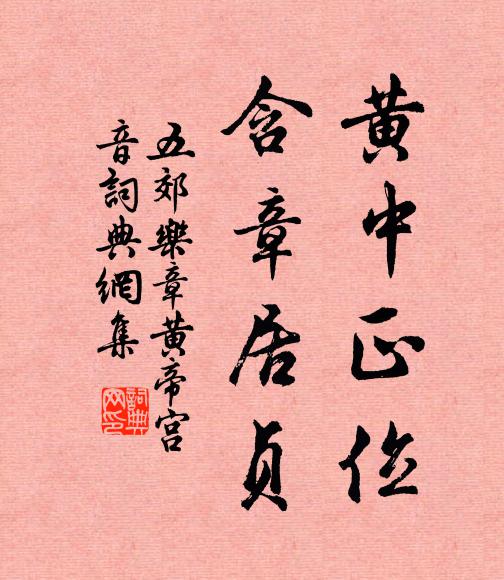 黄中正位
含章居貞
五郊樂章黄帝宫
音詞典網集
詞典
网印